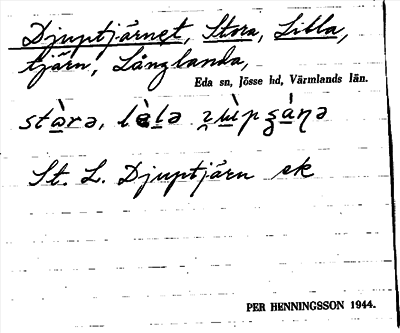 Djuptjärnet, Stora, Lilla,
tjärn, Långlanda,
Eda sn, Jösse hd, Värmlands län.
St. L. Djuptjärn ek
PER HENNINGSSON 1944.